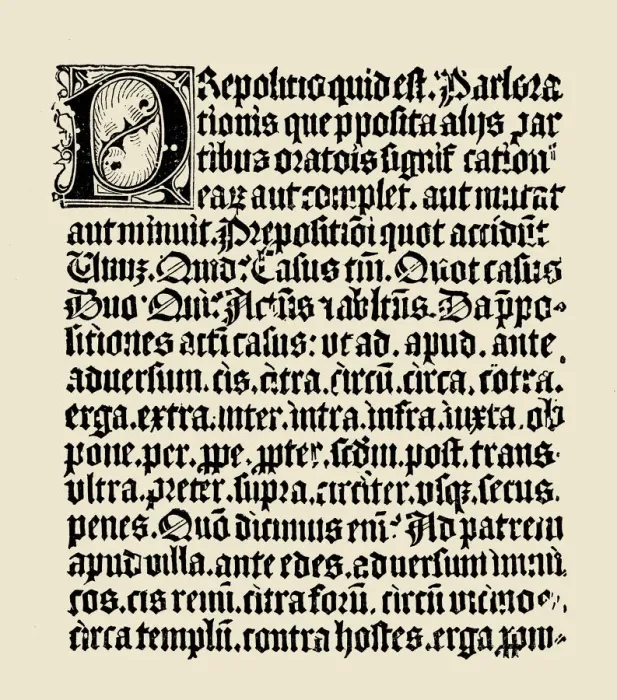 PRepositio quid est. Pars ora
tionis que pposita alijs par
tibus orationis significationē
eaꝝ aut complet. aut mutat
aut minuit. Prepositiōi quot accidūt
Unuz. Quid? Casus tm̄. Quot casus
Duo. Qui? Actūs ⁊ abltūs. Da p̄po-
sitiones acti casus: vt ad. apud. ante.
adversum. cis. citra. circū. circa. cōtra.
erga. extra. inter. intra. infra. iuxta. ob
pone. per. ꝓpe. ꝓpter. scdm. post. trans.
vltra. preter. supra. circiter. vsqꝫ. secus.
penes. Quō dicimus eni? Ad patrem
apud villa. ante edes. adversum inimi
cos. cis renū. citra forū. circū vicino
circa templū. contra hostes. erga